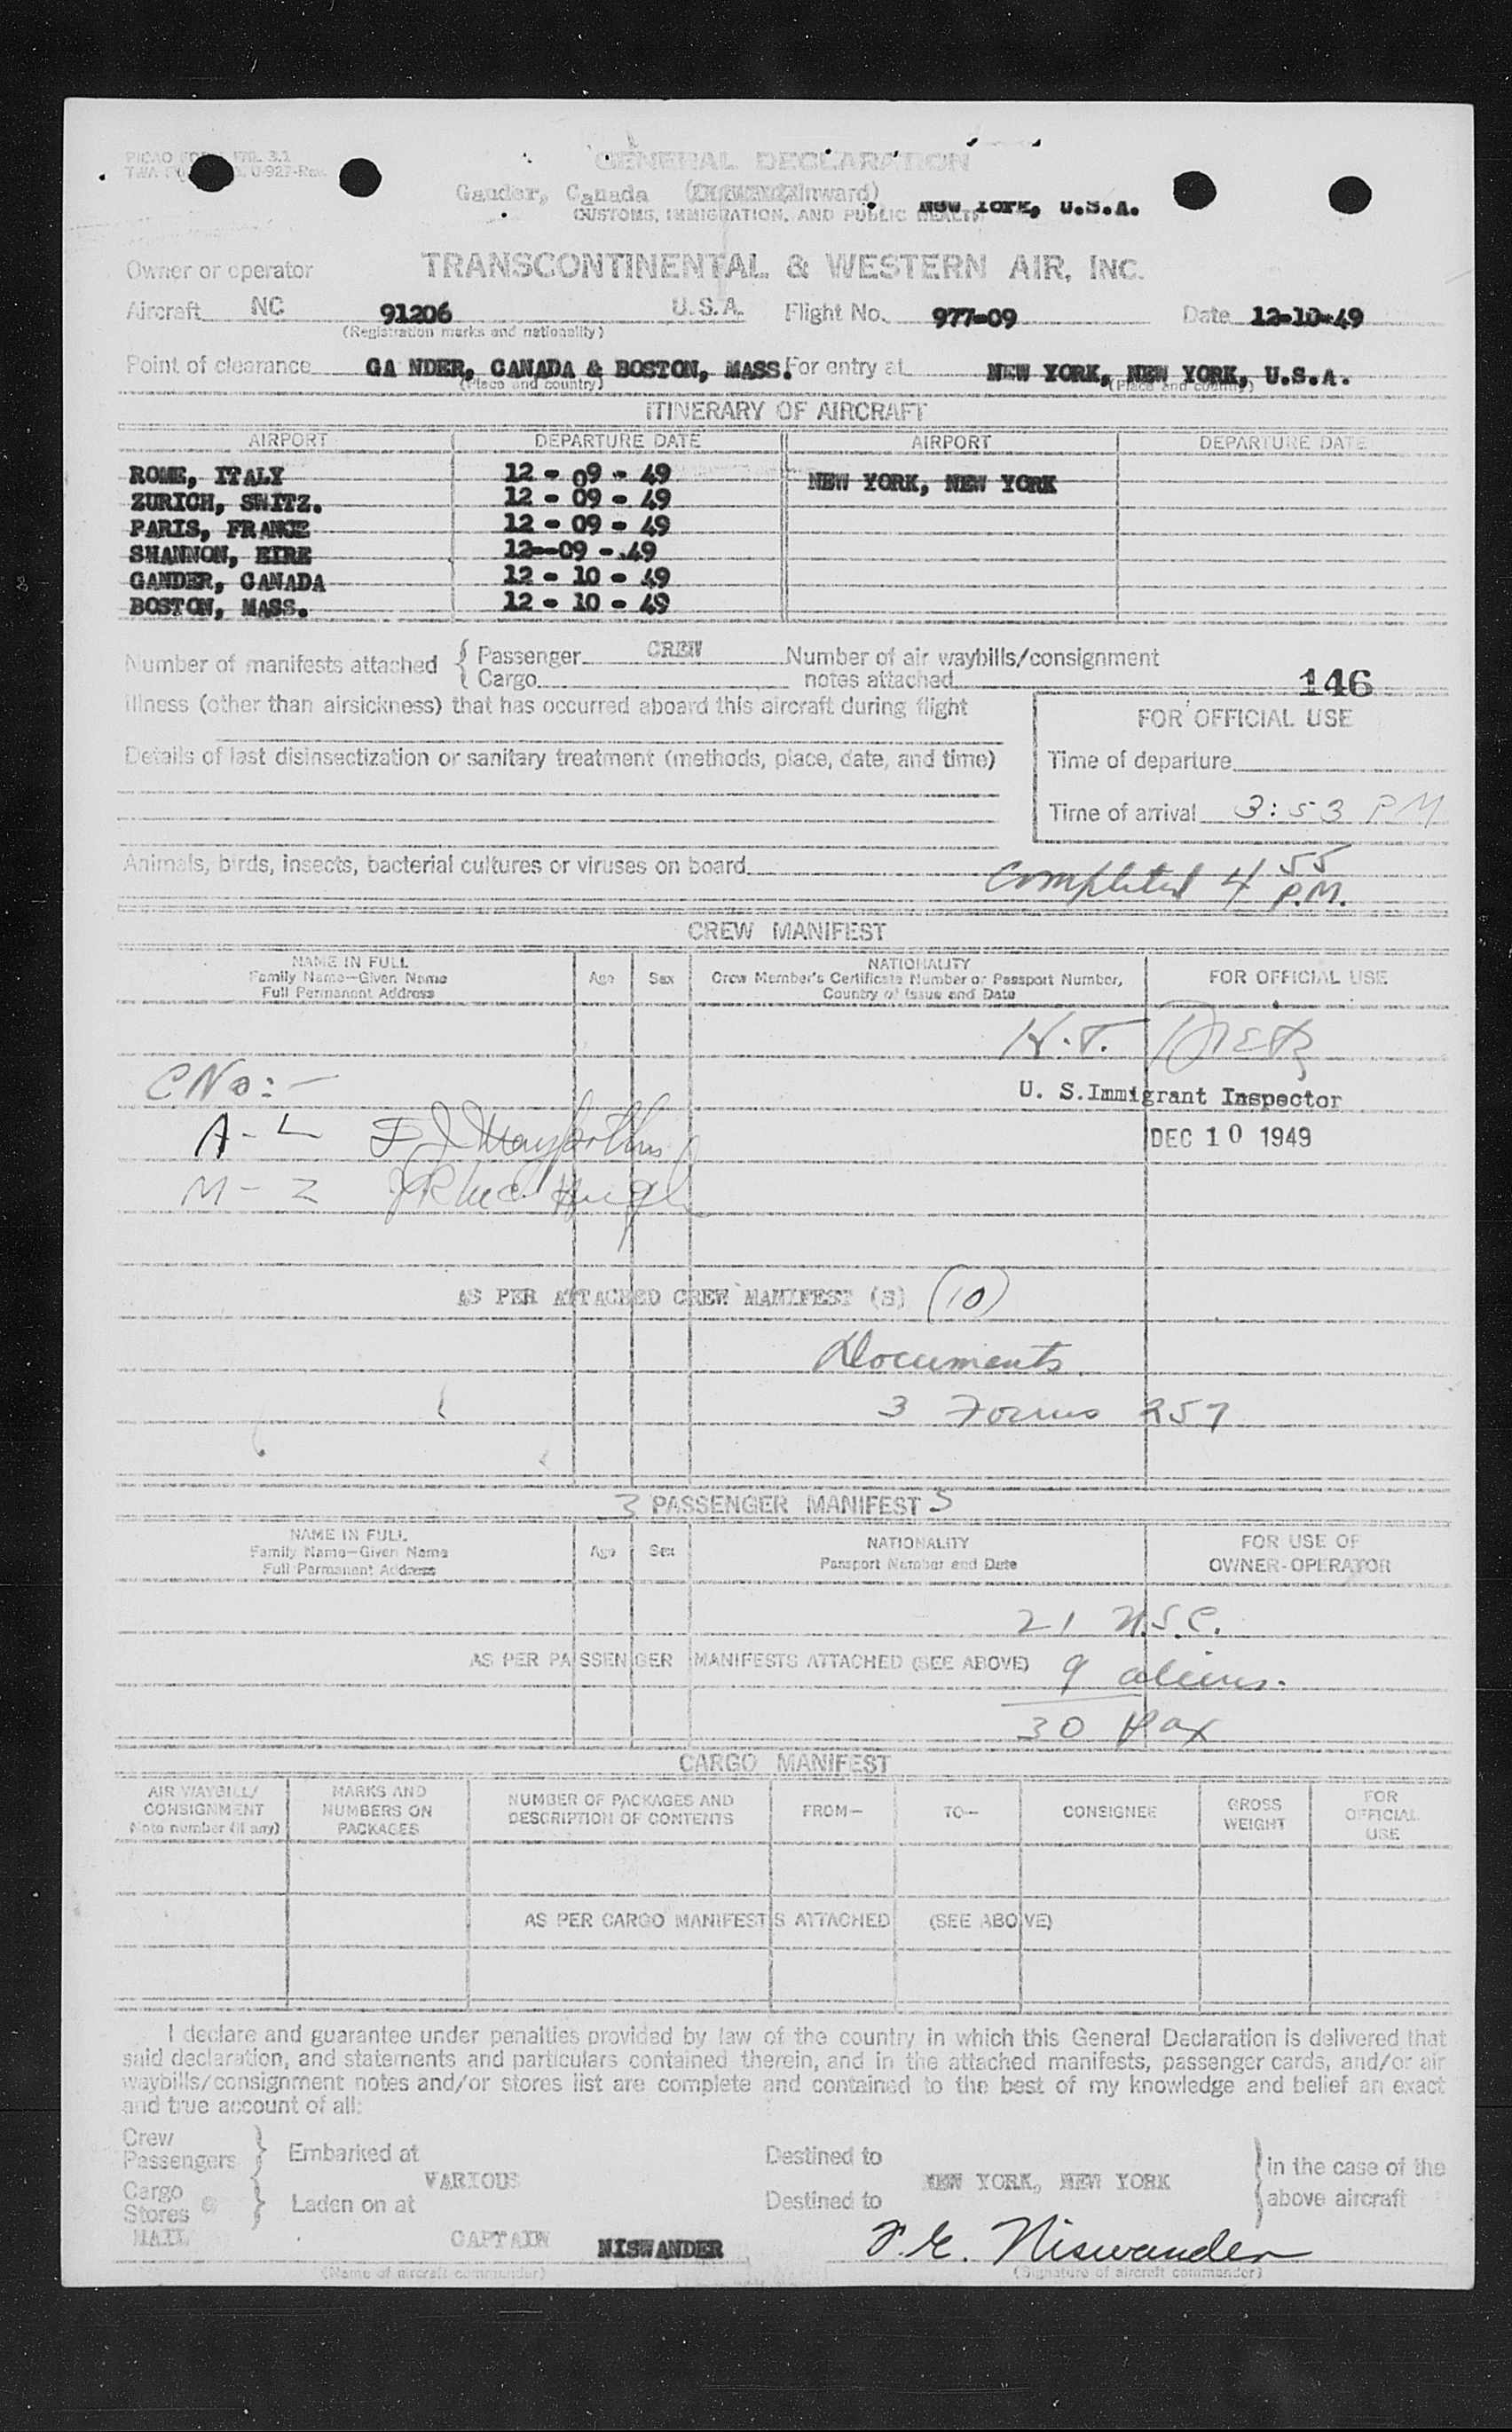 GENERAL DECLARATION
Gander, Canada (Inward) New York, U.S.A.
CUSTOMS, IMMIGRATION, AND PUBLIC HEALTH
Owner or operator TRANSCONTINENTAL & WESTERN AIR, INC.
Aircraft NC 91206 U.S.A. Flight No. 977-09 Date 12-10-49
(Registration marks and nationality)
Point of clearance GA NDER, CANADA & BOSTON, MASS. For entry at NEW YORK, NEW YORK, U.S.A.
(Place and country) (Place and country)
ITINERARY OF AIRCRAFT
AIRPORT DEPARTURE DATE AIRPORT DEPARTURE DATE
ROME, ITALY 12 - 09 - 49 NEW YORK, NEW YORK
ZURICH, SWITZ. 12 - 09 - 49
PARIS, FRANCE 12 - 09 - 49
SHANNON, EIRE 12--09 -.49
GANDER, CANADA 12 - 10 - 49
BOSTON, MASS. 12 - 10 - 49
Number of manifests attached { Passenger CREW Number of air waybills/consignment
Cargo notes attached 146
Illness (other than airsickness) that has occurred aboard this aircraft during flight
FOR OFFICIAL USE
Details of last disinsectization or sanitary treatment (methods, place, date, and time)
Time of departure
Time of arrival 3:53 PM
Animals, birds, insects, bacterial cultures or viruses on board
Completed 4 55 P.M.
CREW MANIFEST
NAME IN FULL
Family Name—Given Name
Full Permanent Address
Age Sex
NATIONALITY
Crew Member's Certificate Number or Passport Number,
Country of Issue and Date
FOR OFFICIAL USE
H.T. Dietz
CNo:-
U. S.Immigrant Inspector
A - L
DEC 10 1949
M - Z J R McHugh
AS PER ATTACHED CREW MANIFEST (S) (10)
Documents
3 Forms 257
3 PASSENGER MANIFEST S
NAME IN FULL
Family Name—Given Name
Full Permanent Address
Age Sex
NATIONALITY
Passport Number and Date
FOR USE OF
OWNER-OPERATOR
21 U.S.C.
AS PER PASSENGER MANIFESTS ATTACHED (SEE ABOVE) 9 aliens.
30 Pax
CARGO MANIFEST
AIR WAYBILL/
CONSIGNMENT
Note number (if any)
MARKS AND
NUMBERS ON
PACKAGES
NUMBER OF PACKAGES AND
DESCRIPTION OF CONTENTS
FROM—
TO—
CONSIGNEE
GROSS
WEIGHT
FOR
OFFICIAL
USE
AS PER CARGO MANIFESTS ATTACHED (SEE ABOVE)
I declare and guarantee under penalties provided by law of the country in which this General Declaration is delivered that
said declaration, and statements and particulars contained therein, and in the attached manifests, passenger cards, and/or air
waybills/consignment notes and/or stores list are complete and contained to the best of my knowledge and belief an exact
and true account of all:
Crew
Passengers } Embarked at Destined to
VARIOUS NEW YORK, NEW YORK } in the case of the
Cargo
Stores } Laden on at Destined to above aircraft
MAIL CAPTAIN NISWANDER F. E. Niswander
(Name of aircraft commander) (Signature of aircraft commander)